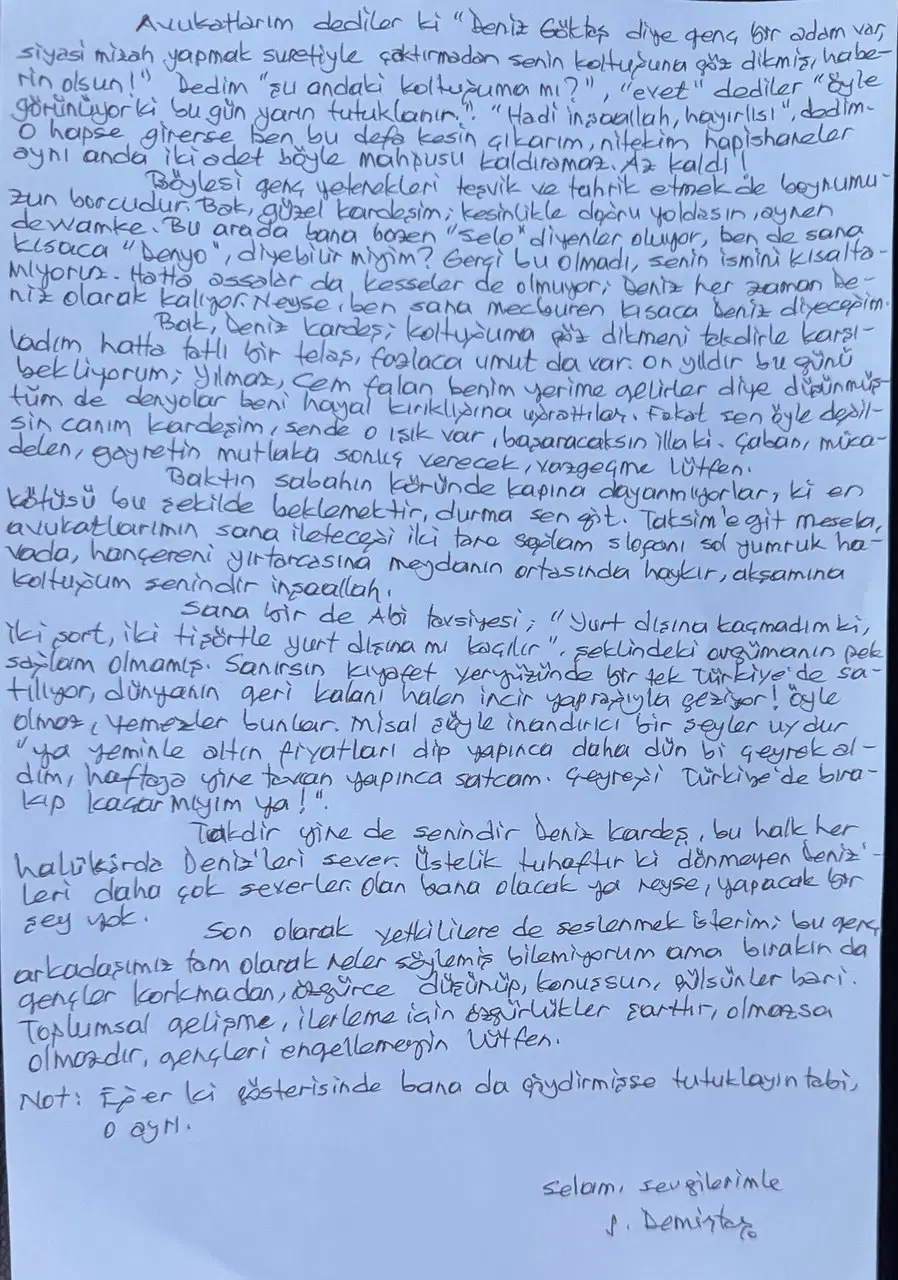 Avukatlarım dediler ki "Deniz Göktaş diye genç bir adam var,
siyasi mizah yapmak suretiyle çaktırmadan senin koltuğuna göz dikmiş, habe-
rin olsun!" Dedim "şu andaki koltuğuma mı?", "evet" dediler "öyle
görünüyor ki bu gün yarın tutuklanır." "Hadi inşaallah, hayırlısı", dedim.
O hapse girerse ben bu defa kesin çıkarım, nitekim hapishaneler
aynı anda iki adet böyle mahpusu kaldıramaz. Az kaldı!
Böylesi genç yetenekleri teşvik ve tahrik etmek de boynumu-
zun borcudur. Bak, güzel kardeşim; kesinlikle doğru yoldasın, aynen
dewamke. Bu arada bana bazen "Selo" diyenler oluyor, ben de sana
kısaca "Denyo", diyebilir miyim? Gerçi bu olmadı, senin ismini kısalta-
mıyoruz. Hatta assalar da kesseler de olmuyor; Deniz her zaman De-
niz olarak kalıyor. Neyse, ben sana mecburen kısaca Deniz diyeceğim.
Bak, Deniz kardeş; koltuğuma göz dikmeni takdirle karşı-
ladım hatta tatlı bir telaş, fazlaca umut da var. On yıldır bu günü
bekliyorum; Yılmaz, Cem falan benim yerime gelirler diye düşünmüş-
tüm de denyolar beni hayal kırıklığına uğrattılar. Fakat sen öyle değil-
sin canım kardeşim, sende o ışık var, başaracaksın illaki. Çaban, müca-
delen, gayretin mutlaka sonuç verecek, vazgeçme lütfen.
Baktın sabahın köründe kapına dayanmıyorlar, ki en
kötüsü bu şekilde beklemektir, durma sen git. Taksim'e git mesela,
avukatlarımın sana ileteceği iki tane sağlam sloganı sol yumruk ha-
vada, hançereni yırtarcasına meydanın ortasında haykır, akşamına
koltuğum senindir inşaallah.
Sana bir de Abi tavsiyesi; "Yurt dışına kaçmadım ki,
iki şort, iki tişörtle yurt dışına mı kaçılır". şeklindeki argümanın pek
sağlam olmamış. Sanırsın kıyafet yeryüzünde bir tek Türkiye'de sa-
tılıyor, dünyanın geri kalanı halen incir yaprağıyla geziyor! Öyle
olmaz, yemezler bunlar. Misal şöyle inandırıcı bir şeyler uydur
"ya yeminle altın fiyatları dip yapınca daha dün bi çeyrek al-
dım, haftaya yine tavan yapınca satcam. Çeyreği Türkiye'de bıra-
kıp kaçar mıyım ya!".
Takdir yine de senindir Deniz kardeş, bu halk her
halükârda Deniz'leri sever. Üstelik tuhaftır ki dönmeyen Deniz'-
leri daha çok severler. Olan bana olacak ya neyse, yapacak bir
şey yok.
Son olarak yetkililere de seslenmek isterim; bu genç
arkadaşımız tam olarak neler söylemiş bilemiyorum ama bırakın da
gençler korkmadan, özgürce düşünüp, konuşsun, gülsünler bari.
Toplumsal gelişme, ilerleme için özgürlükler şarttır, olmazsa
olmazdır, gençleri engellemeyin lütfen.
Not: Eğer ki gösterisinde bana da giydirmişse tutuklayın tabi,
o ayrı.
Selam, sevgilerimle
S. Demirtaş